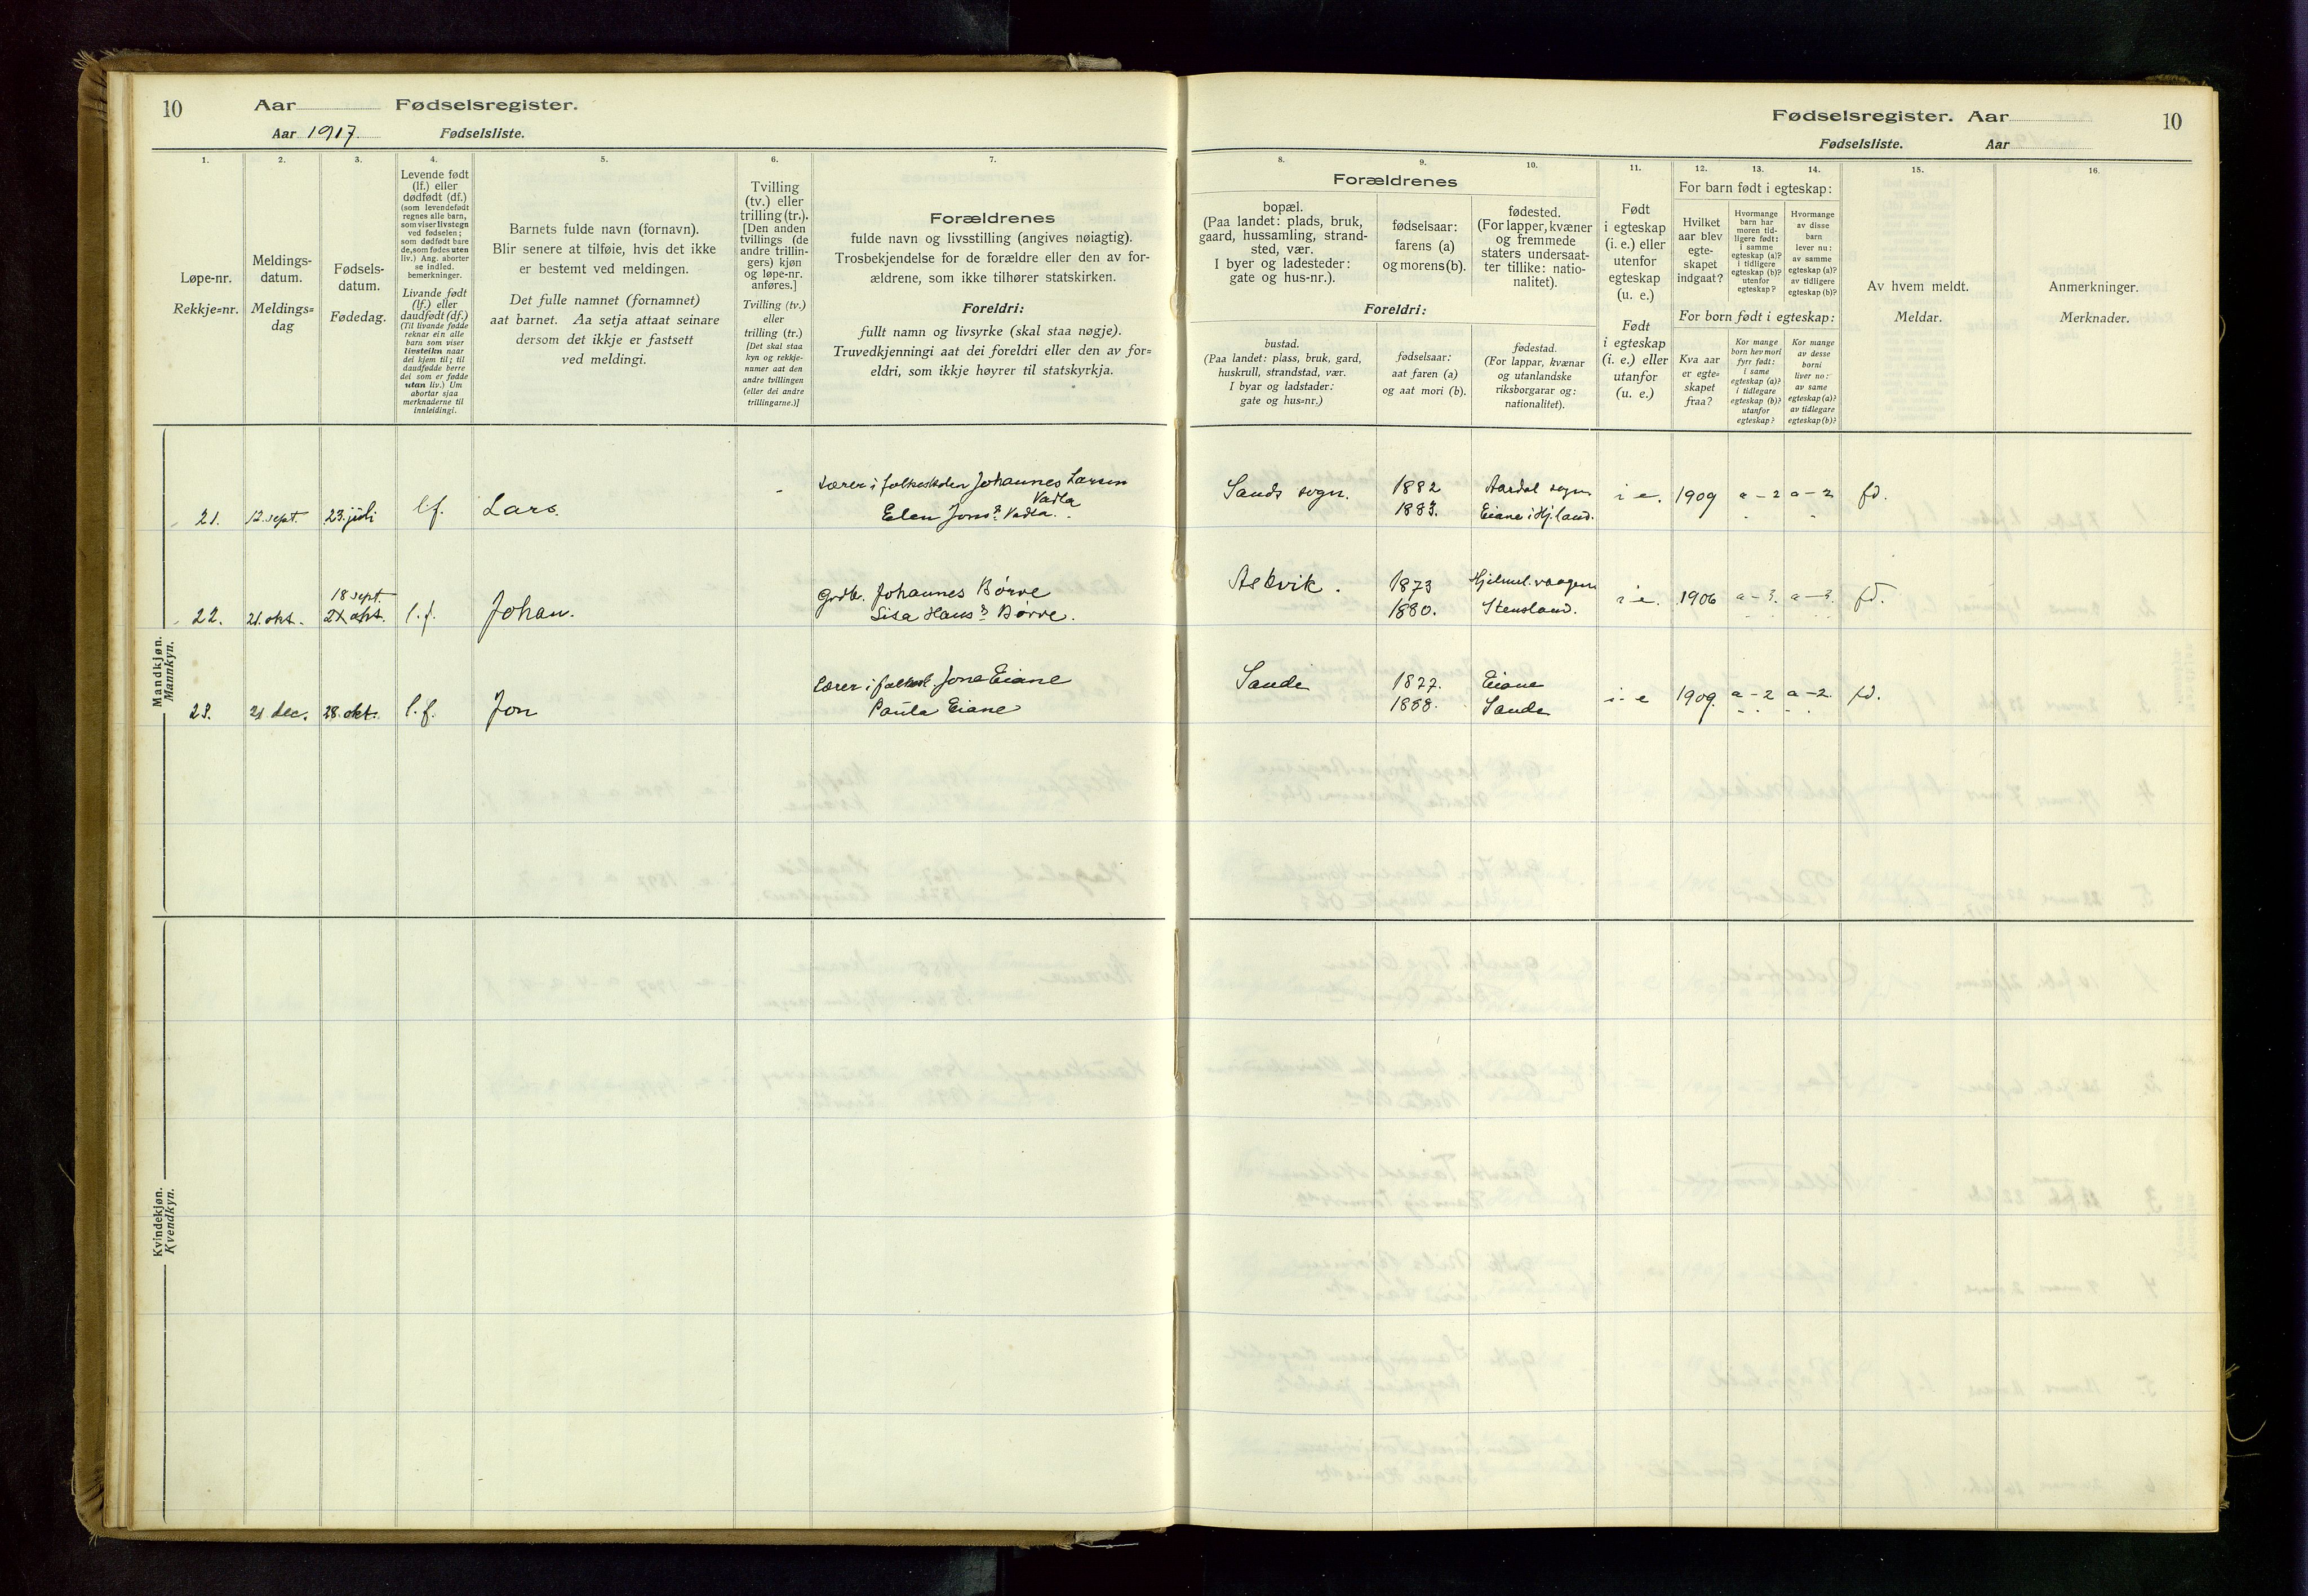 10 Aar Fødselsregister.
Aar 1917. Fødselsliste.
1. 2. 3. 4. 5. 6. 7.
Løpe-nr.
Rekkje=nr.
Meldings-
datum.
Meldings=
dag
Fødsels-
datum.
Fødedag.
Levende født
(lf.) eller
dødfødt (df.)
(som levendefødt
regnes alle barn,
som viser livstegn
ved fødselen;
som dødfødt bare
de, som fødes uten
liv.) Ang. aborter
se indled.
bemerkninger.
Livande født
(lf.) eller
daudfødt (df.)
(Til livande fødde
reknar ein alle
barn som viser
livsteikn naar
dei kjem til; til
daudfødde berre
dei som er fødde
utan liv.) Um
abortar sjaa
merknaderne til
innleidingi.
Barnets fulde navn (fornavn).
Blir senere at tilføie, hvis det ikke
er bestemt ved meldingen.
Det fulle namnet (fornamnet)
aat barnet. Aa setja attaat seinare
dersom det ikkje er fastsett
ved meldingi.
Tvilling
(tv.) eller
trilling (tr.).
[Den anden
tvillings (de
andre trillin-
gers) kjøn
og løpe-nr.
anføres.]
Tvilling (tv.)
eller
trilling (tr.)
[Det skal staa
kyn og rekkje-
numer aat den
andre tvillingen
(eller dei andre
trillingarne.)]
Forældrenes
fulde navn og livsstilling (angives nøiagtig).
Trosbekjendelse for de forældre eller den av for-
ældrene, som ikke tilhører statskirken.
Foreldri:
fullt namn og livsyrke (skal staa nøgje).
Truvedkjenningi aat dei foreldri eller den av for=
eldri, som ikkje høyrer til statskyrkja.
Mandkjøn.
Mannkyn.
21. 12. sept. 23. juli lf. Lars. - Lærer i folkeskolen Johannes Larsen
Vadla
Elen Jons? Vadla.
22. 21. okt. 18 sept. l.f. Johan. Grdbr. Johannes Børve
Lisa Hans? Børve.
23. 21 dec. 28. okt. l.f. Jon Lærer i folkesk. Jone Eiane
Paula Eiane
Kvindekjøn.
Kvendkyn.
Fødselsregister. Aar 10
Fødselsliste. Aar
8. 9. 10. 11. 12. 13. 14. 15. 16.
Forældrenes
bopæl.
(Paa landet: plads, bruk,
gaard, hussamling, strand-
sted, vær.
I byer og ladesteder:
gate og hus-nr.).
fødselsaar:
farens (a)
og morens (b).
fødested.
(For lapper, kvæner
og fremmede
staters undersaat-
ter tillike: natio-
nalitet).
Foreldri:
bustad.
(Paa landet: plass, bruk, gard,
huskrull, strandstad, vær.
I byar og ladstader:
gate og hus=nr.)
fødselsaar:
aat faren (a)
og aat mori (b).
fødestad.
(For lappar, kvænar
og utanlandske
riksborgarar og:
nationalitet).
Født
i egteskap
(i. e.) eller
utenfor
egteskap
(u. e.)
Født
i egteskap
(i. e.) eller
utanfor
(u. e.)
For barn født i egteskap:
Hvilket
aar blev
egte-
skapet
indgaat?
Hvormange
barn har
moren tid-
ligere født:
i samme
egteskap (a)?
i tidligere
egteskap (b)?
utenfor
egteskap?
Hvormange
av disse
barn
lever nu:
av samme
egteskap (a)?
av tidligere
egteskap (b)?
For born født i egteskap:
Kva aar
er egte=
skapet
fraa?
Kor mange
born hev mori
fyrr født:
i same
egteskap (a)?
i tidlegare
egteskap (b)?
utanfor
egteskap?
Kor mange
av desse
borni
liver no:
av same
egteskap (a)?
av tidlegare
egteskap (b)?
Av hvem meldt.
Meldar.
Anmerkninger.
Merknader.
Sands sogn. 1882 Aardal sogn i e. 1909 a - 2 a - 2 fd.
1883. Eiane i Hj.land.
Askvik. 1873 Hjelmel.vaagen i e. 1906 a - 3. a - 3. fd.
1880. Stensland.
Sande 1877. Eiane i e 1909. a - 2 a - 2. fd.
1888. Sande